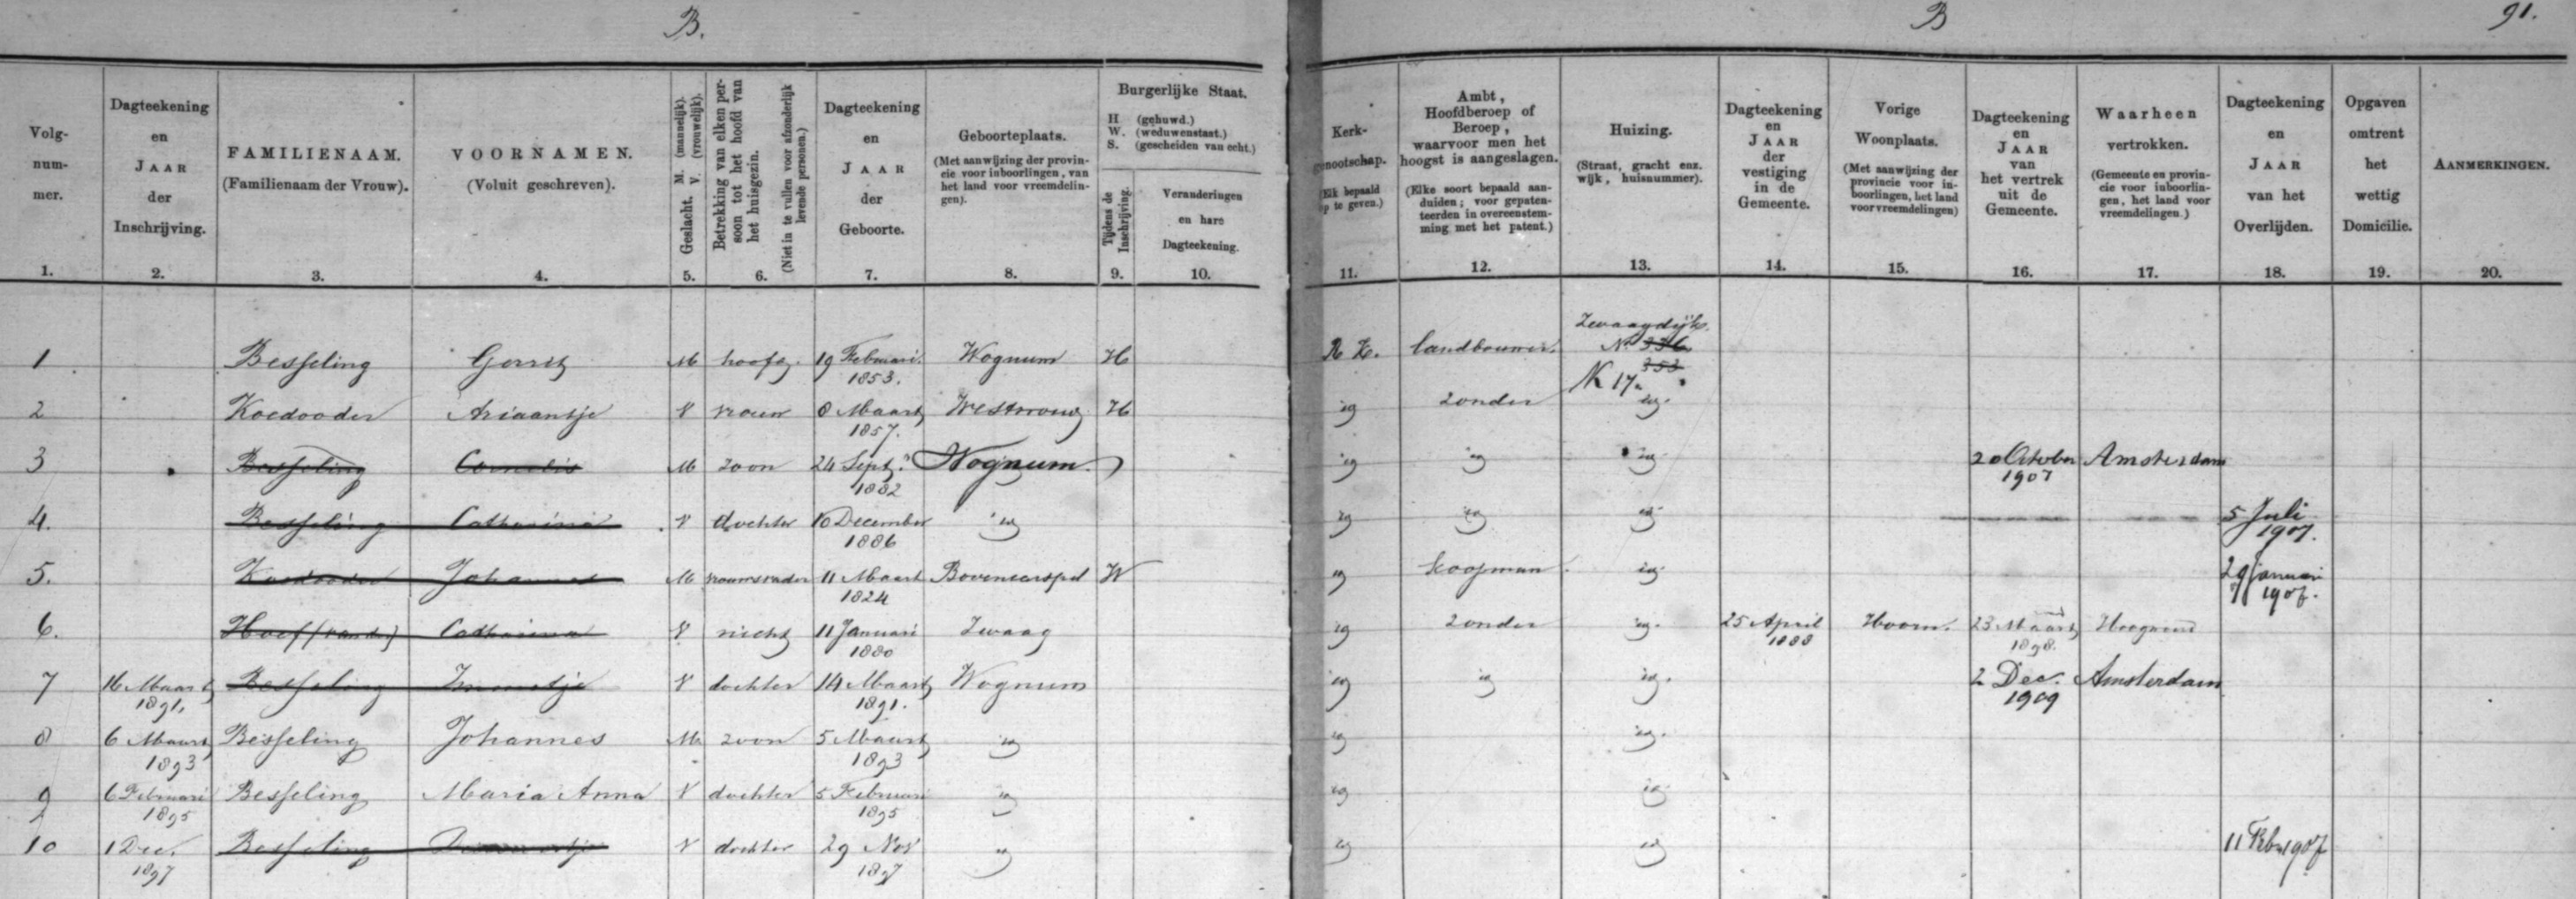 B.
B
91.
Volg-
num-
mer.
1.
Dagteekening
en
JAAR
der
Inschrijving.
2.
FAMILIENAAM.
(Familienaam der Vrouw).
3.
VOORNAMEN.
(Voluit geschreven).
4.
Geslacht. M. (mannelijk).
V. (vrouwelijk).
5.
Betrekking van elken per-
soon tot het hoofd van
het huisgezin.
(Niet in te vullen voor afzonderlijk
levende personen.)
6.
Dagteekening
en
JAAR
der
Geboorte.
7.
Geboorteplaats.
(Met aanwijzing der provin-
cie voor inboorlingen, van
het land voor vreemdelin-
gen).
8.
Burgerlijke Staat.
H (gehuwd.)
W. (weduwenstaat.)
S. (gescheiden van echt.)
Tijdens de
Inschrijving.
9.
Veranderingen
en hare
Dagteekening.
10.
Kerk-
genootschap.
(Elk bepaald
op te geven.)
11.
Ambt,
Hoofdberoep of
Beroep,
waarvoor men het
hoogst is aangeslagen.
(Elke soort bepaald aan-
duiden; voor gepaten-
teerden in overeenstem-
ming met het patent.)
12.
Huizing.
(Straat, gracht enz.
wijk, huisnummer).
13.
Dagteekening
en
JAAR
der
vestiging
in de
Gemeente.
14.
Vorige
Woonplaats.
(Met aanwijzing der
provincie voor in-
boorlingen, het land
voor vreemdelingen)
15.
Dagteekening
en
JAAR
van
het vertrek
uit de
Gemeente.
16.
Waarheen
vertrokken.
(Gemeente en provin-
cie voor inboorlin-
gen, het land voor
vreemdelingen.)
17.
Dagteekening
en
JAAR
van het
Overlijden.
18.
Opgaven
omtrent
het
wettig
Domicilie.
19.
AANMERKINGEN.
20.
Zwaagdijk.
1 Besseling Gerrit M hoofd. 19 Februari. Wognum H R K. landbouwer. No 336
1853. 353
K 17a
2 Koedooder Ariaantje V vrouw 8 Maart Westwoud H id zonder id.
1857.
3 Besseling Cornelis M zoon 24 Sept. Wognum. id id id. 20 October Amsterdam
1882 1907
4. Besseling Catharina V dochter 10 December id id id id 5 Juli
1886 1907.
5. Koedooder Johannes M vrouwsvader 11 Maart Bovencarspel W id koopman. id. 29 januari
1824 1907.
6. Hoef (van der) Catharina V nicht 11 Januari Zwaag id zonder id. 25 April Hoorn. 23 Maart
1880 1888 1898.
7 16 Maart Besseling V dochter 14 Maart Wognum id id id. 2 Dec. Amsterdam
1891. 1891. 1909
8 6 Maart Besseling Johannes M zoon 5 Maart id id id.
1893 1893
9 6 Februari Besseling Maria Anna V dochter 5 Februari id id id.
1895 1895
10 1 Dec. Besseling V dochter 29 Nov id id id 11 Feb. 1907
1897 1897